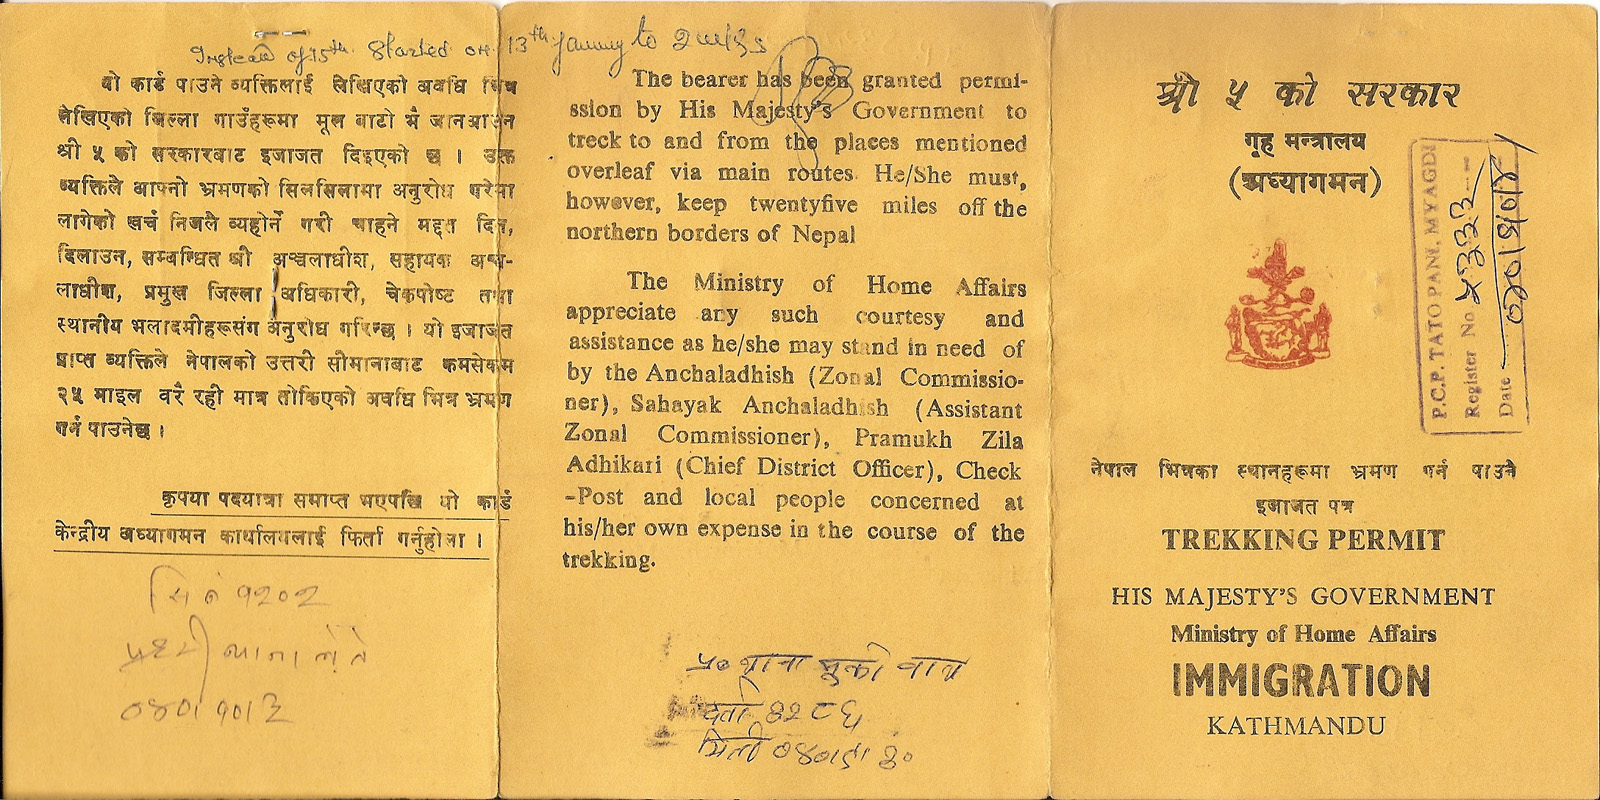 Instead of 15th. Started on 13th January to 2 wks
यो कार्ड पाउने व्यक्तिलाई लेखिएको अवधि भित्र
लेखिएको जिल्ला गाउँहरूमा मूल बाटो भै जानआउन
श्री ५ को सरकारबाट इजाजत दिइएको छ । उक्त
व्यक्तिले आफ्नो भ्रमणको सिलसिलामा अनुरोध गरेमा
लागेको खर्च निजलै व्यहोर्ने गरी चाहने मद्दत दिन,
दिलाउन, सम्बन्धित श्री अञ्चलाधीश, सहायक अञ्च-
लाधीश, प्रमुख जिल्ला अधिकारी, चेकपोष्ट तथा
स्थानीय भलादमीहरूसंग अनुरोध गरिन्छ । यो इजाजत
प्राप्त व्यक्तिले नेपालको उत्तरी सीमानाबाट कमसेकम
२५ माइल वरै रही मात्र तोकिएको अवधि भित्र भ्रमण
गर्न पाउनेछ ।
कृपया पदयात्रा समाप्त भएपछि यो कार्ड
केन्द्रीय अध्यागमन कार्यालयलाई फिर्ता गर्नुहोला ।
१२०२
The bearer has been granted permi-
ssion by His Majesty's Government to
treck to and from the places mentioned
overleaf via main routes. He/She must,
however, keep twentyfive miles off the
northern borders of Nepal
The Ministry of Home Affairs
appreciate any such courtesy and
assistance as he/she may stand in need of
by the Anchaladhish (Zonal Commissio-
ner), Sahayak Anchaladhish (Assistant
Zonal Commissioner), Pramukh Zila
Adhikari (Chief District Officer), Check
-Post and local people concerned at
his/her own expense in the course of the
trekking.
दर्ता ४२८६
मिती
श्री ५ को सरकार
गृह मन्त्रालय
(अध्यागमन)
P.C.P. TATOPANI, MYAGDI
Register No ५३३३
Date
नेपाल भित्रका स्थानहरूमा भ्रमण गर्न पाउने
इजाजत पत्र
TREKKING PERMIT
HIS MAJESTY'S GOVERNMENT
Ministry of Home Affairs
IMMIGRATION
KATHMANDU